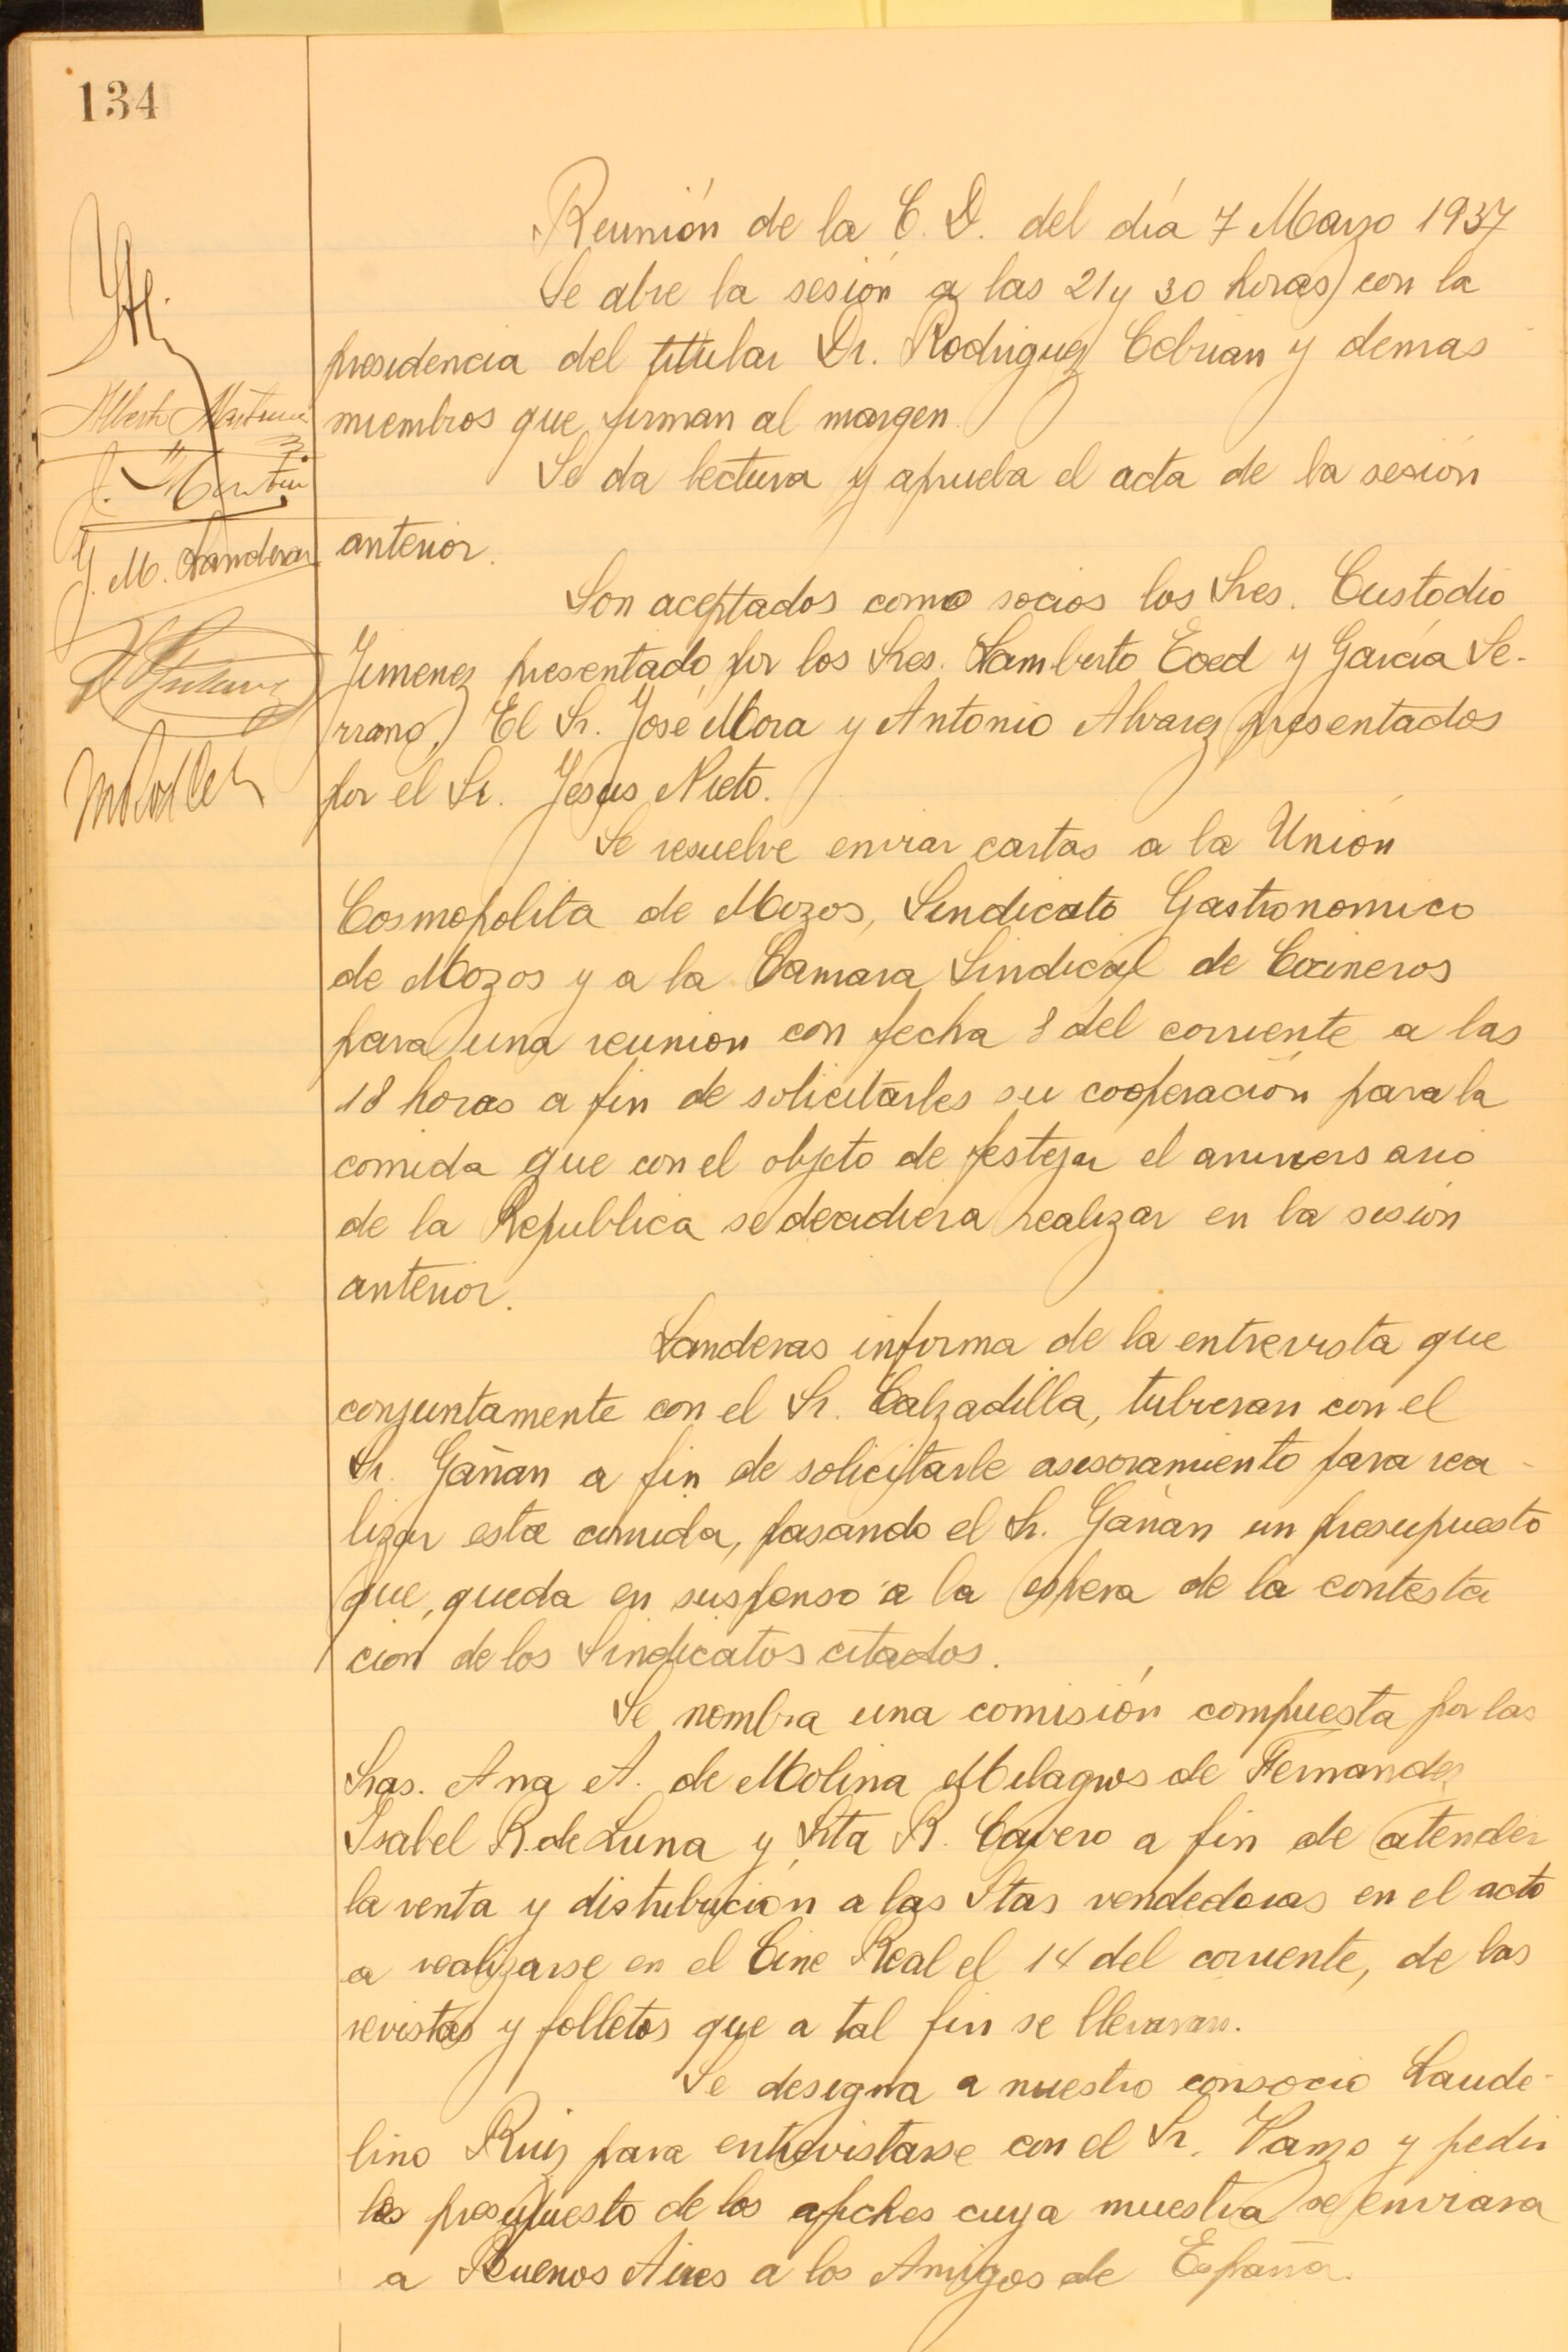 134
Reunión de la C. D. del día 7 Marzo 1937
Se abre la sesión a las 21 y 30 horas con la
presidencia del titular Dr. Rodriguez Cebrian y demas
miembros que firman al margen.
Se da lectura y aprueba el acta de la sesión
anterior.
Son aceptados como socios los Sres. Custodio
Jimenez presentado por los Sres. Lamberto Eced y García Se-
rrano, El Sr. José Mora y Antonio Alvarez presentados
por el Sr. Jesus Nieto.
Se resuelve enviar cartas a la Unión
Cosmopolita de Mozos, Sindicato Gastronomico
de Mozos y a la Camara Sindical de Cocineros
para una reunion con fecha 8 del corriente a las
18 horas a fin de solicitarles su cooperación para la
comida que con el objeto de festejar el aniversario
de la Republica se decidiera realizar en la sesion
anterior.
Landeras informa de la entrevista que
conjuntamente con el Sr. Calzadilla, tubieran con el
Sr. Gañan a fin de solicitarle asesoramiento para rea-
lizar esta comida, pasando el Sr. Gañan un presupuesto
que, queda en suspenso a la espera de la contesta
cion de los Sindicatos citados.
Se nombra una comisión compuesta por las
Sras. Ana A. de Molina Milagros de Fernandez
Isabel R. de Luna y Srta R. Cavero a fin de atender
la venta y distribución a las Stas vendedoras en el acto
a realizarse en el Cine Real el 14 del corriente, de las
revistas y folletos que a tal fin se llevaran.
Se designa a nuestro consocio Laude-
lino Ruiz para entrevistarse con el Sr. Vanzo y pedir
les presupuesto de los afiches cuya muestra se enviara
a Buenos Aires a los Amigos de España.
Alberto Martinez
J. Martin
J. M. Landeras